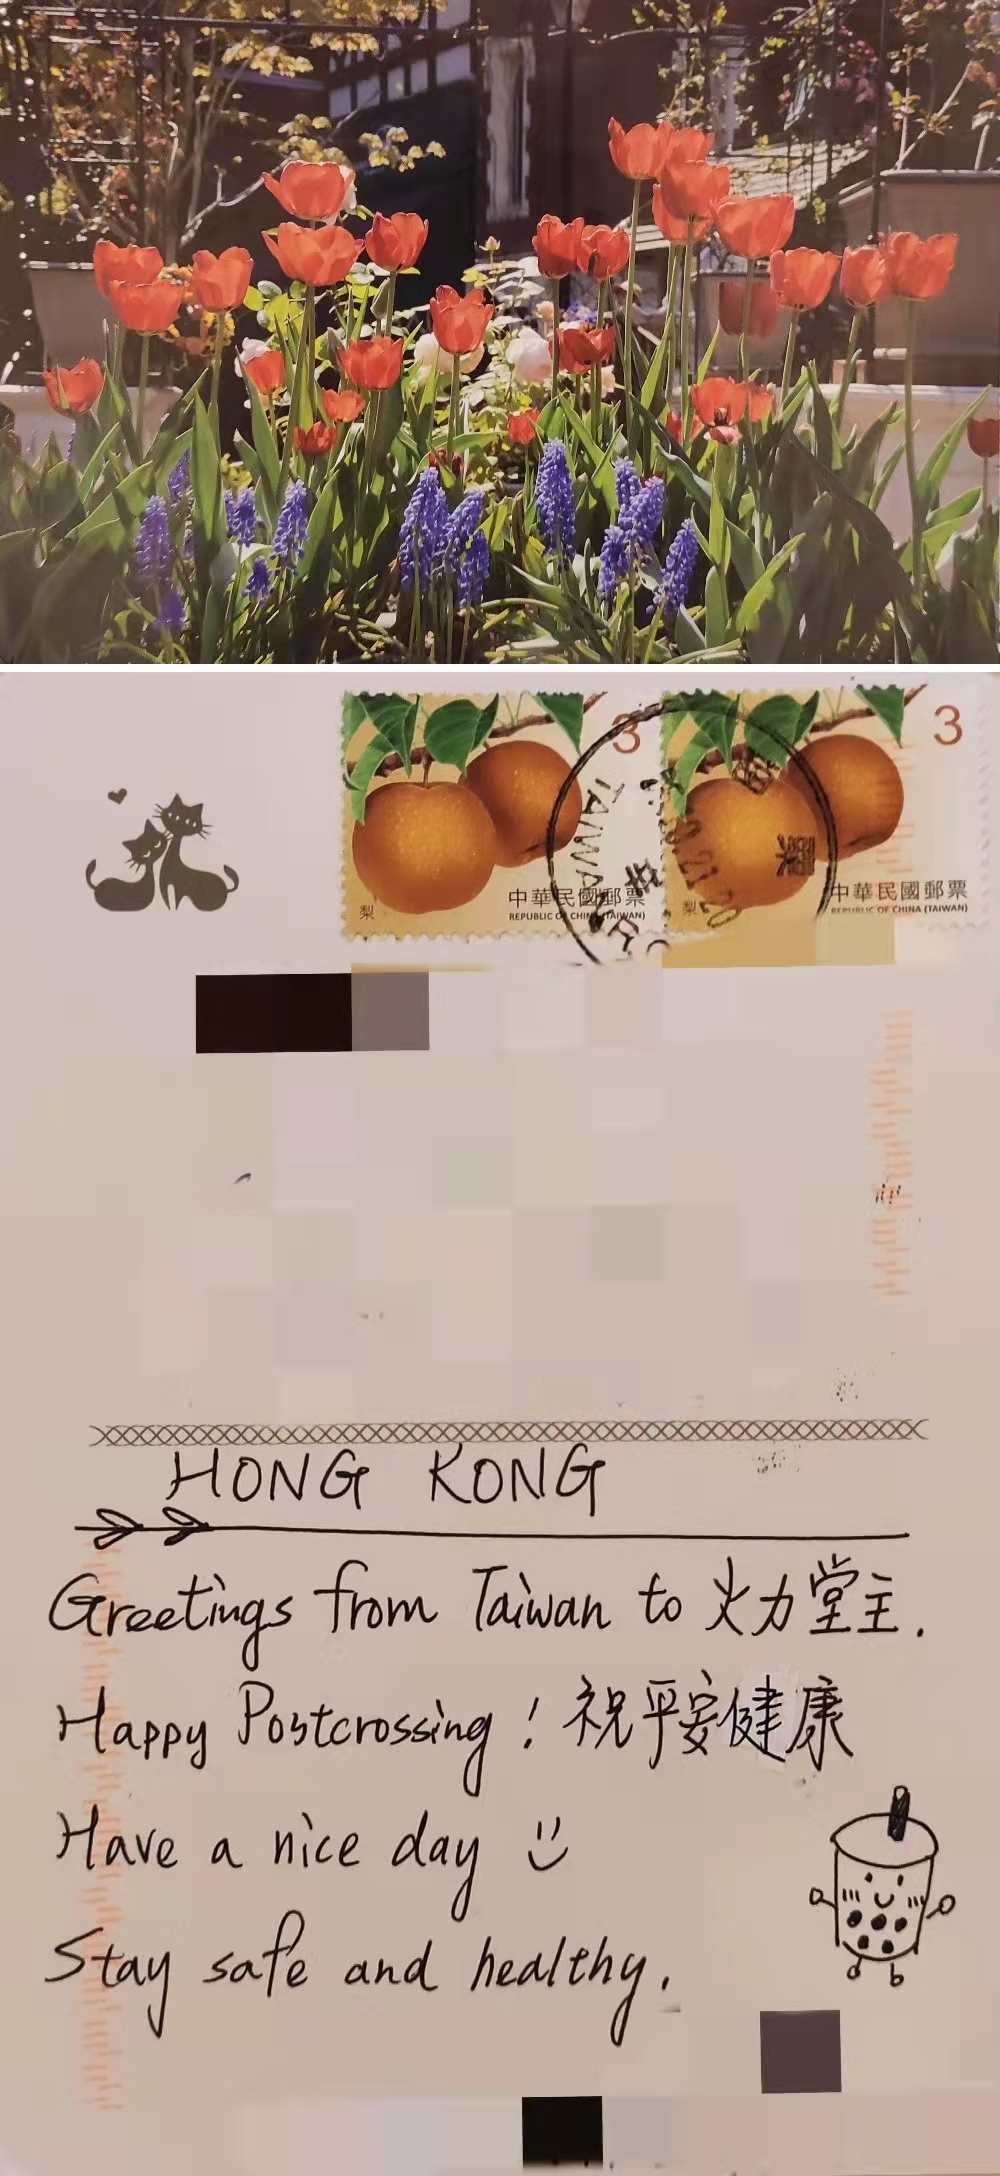 3
3
梨
中華民國郵票
REPUBLIC OF CHINA (TAIWAN)
梨
中華民國郵票
REPUBLIC OF CHINA (TAIWAN)
TAIWAN
HONG KONG
Greetings from Taiwan to 火力堂主.
Happy Postcrossing! 祝平安健康
Have a nice day
Stay safe and healthy.